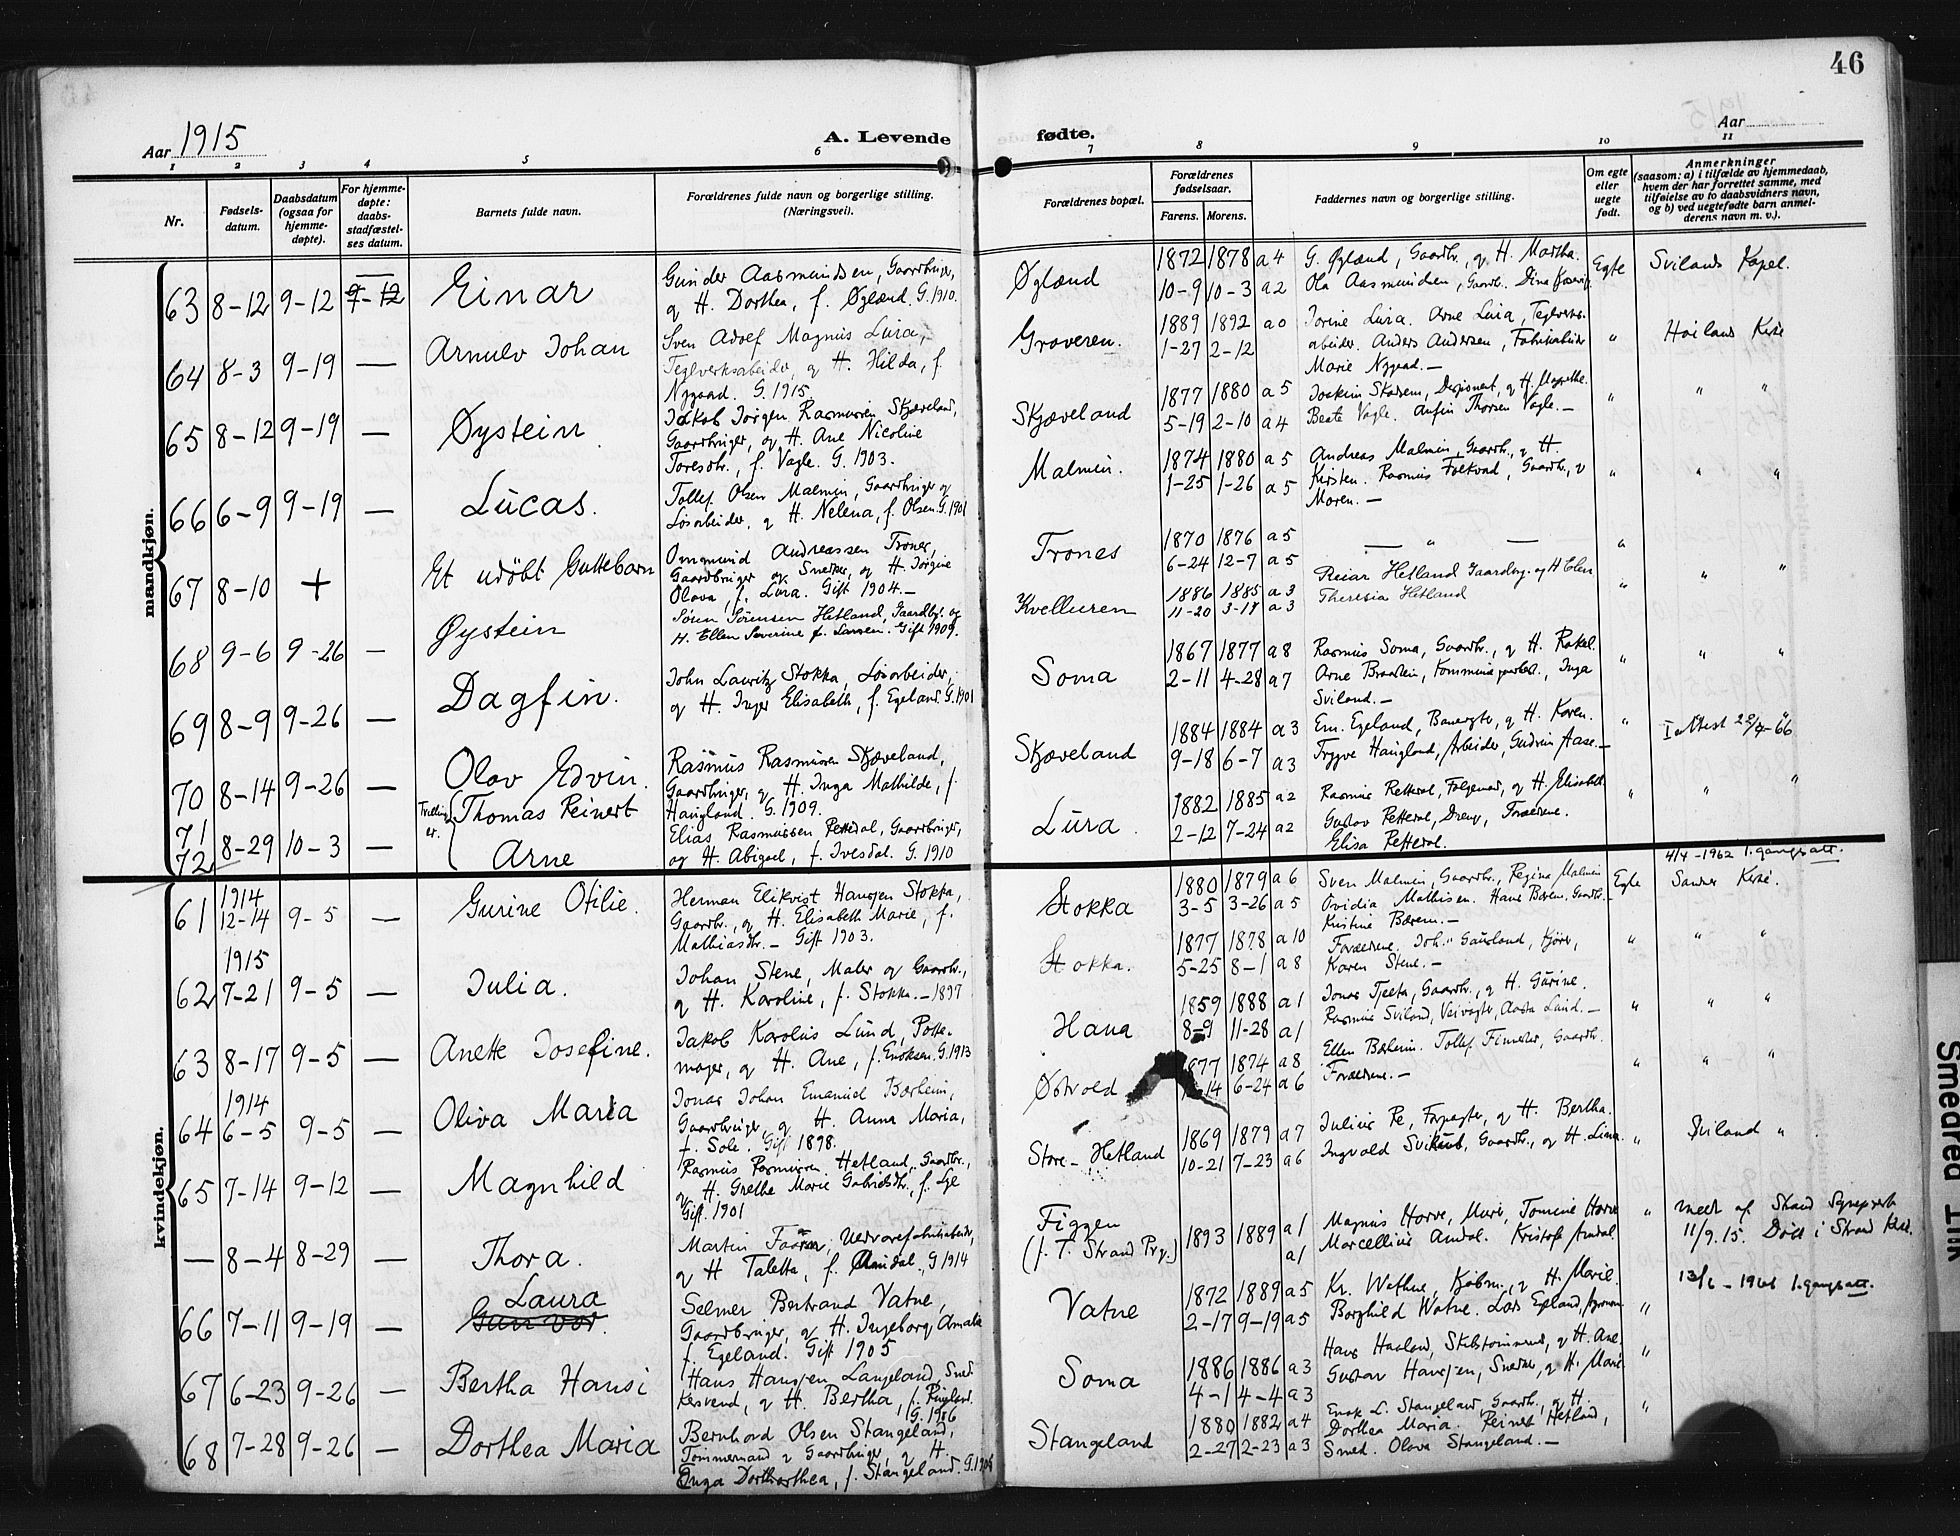 46
Aar 1915
A. Levende fødte.
Aar
1 2 3 4 5 6 7 8 9 10 11
Nr.
Fødsels-
datum.
Daabsdatum
(ogsaa for
hjemme-
døpte).
For hjemme-
døpte:
daabs-
stadfæstel-
ses datum.
Barnets fulde navn.
Forældrenes fulde navn og borgerlige stilling.
(Næringsvei).
Forældrenes bopæl.
Forældrenes
fødselsaar.
Farens. Morens.
Faddernes navn og borgerlige stilling.
Om egte
eller
uegte
født.
Anmerkninger
(saasom: a) i tilfælde av hjemmedaab,
hvem der har forrettet samme, med
tilføielse av to daabsvidners navn,
og b) ved uegtefødte barn anmel-
derens navn m. v.).
mandkjøn.
63 8-12 9-12 9-12 Einar
Gunder Aasmundsen, Gaardbruger,
og H. Dorthea, f. Øglænd. G. 1910.
Øglænd
1872 1878 a 4
10-9 10-3 a 2
G. Øglænd, Gaardbr., og H. Martha.
Ola Aasmundsen, Gaardb. Dina
Egte
Svilands Kapel.
64 8-3 9-19 — Arnulv Johan
Sven Adolf Magnus Lura,
Teglverksarbeider, og H. Hilda, f.
Nygaad. G. 1915.
Graveren.
1889 1892 a 0
1-27 2-12
Jorine Lura. Arne Lura, Teglverks-
abeider. Anders Andersen, Fabrikabeider
Marie Nygaad. —
"
Høilands Kirke
65 8-12 9-19 — Øystein
Jakob Jörgen Rasmussen Skjæveland,
Gaardbruger, og H. Ane Nicoline
Toresdtr., f. Vagle. G. 1903.
Skjæveland
1877 1880 a 5
5-19 2-10 a 4
Joakim Stadsem, Disponent, og H. Magrethe.
Beate Vagle. Anfin Thorsen Vagle. —
" " "
66 6-9 9-19 — Lucas.
Tollef Olsen Malmin, Gaardbruger og
Løsarbeider, og H. Nelena, f. Olsen. G. 1901
Malmin.
1874 1880 a 5
1-25 1-26 a 5
Andreas Malmin, Gaardb., og H.
Kirsten. Rasmus Folkvad, Gaardb., og
Maren. —
" " "
67 8-10 + Et udöbt Guttebarn
Ommund Andreassen Trones,
Gaardbruger og Snedker, og H. Jörgine
Olava, f. Lura. Gift 1904. —
Trones
1870 1876 a 5
6-24 12-7 a 5
— " —
"
68 9-6 9-26 — Øystein
Sören Sörensen Hetland, Gaardbr. og
H. Ellen Severine f. Larsen. Gift 1909.
Kvelluren
1886 1885 a 3
11-20 3-17 a 3
Reiar Hetland Gaardbg. og H Elen
Theresia Hetland
" " "
69 8-9 9-26 — Dagfin.
John Lauritz Stokka, Løsarbeider,
og H. Inger Elisabeth, f. Egeland. G. 1901
Soma
1867 1877 a 8
2-11 4-28 a 7
Rasmus Soma, Gaardbr., og H. Rakel.
Arne Braastein, Inga
Sviland. —
" " "
70 8-14 9-26 — Olav Edvin.
Rasmus Rasmussen Skjæveland,
Gaardbruger, og H. Inga Mathilde, f.
Haugland. G. 1909.
Skjæveland
1884 1884 a 3
9-18 6-7 a 3
Em. Egeland, Banevgtr, og H. Karen.
Trygve Haugland, Arbeider, Gudrun Aase. —
"
71
72 8-29 10-3 — Tvilling
er. Thomas Reinert
Arne
Elias Rasmussen Retteral, Gaardbruger,
og H. Abigael, f. Ivesdal. G. 1910
Lura.
1882 1885 a 2
2-12 7-24 a 2
Rasmus Retteral, Folgemand, og H. Elisabeth.
Gustav Retteral, Dreng, Forældrene.
Elisa Retteral.
" " "
kvindekjøn.
61 1914
12-14 9-5 — Gurine Otilie.
Herman Elikvist Hansen Stokka,
Gaardbr., og H. Elisabeth Marie, f.
Mathiasdtr. — Gift 1903.
Stokka
1880 1879 a 6
3-5 3-26 a 5
Sven Malmin, Gaardbr., Regina Malmin
Ovidia Mathisen. Hans Bærem. Gaardbr.
Kristine Bærem. —
Egte
4/4-1962 1. gangsatt.
Sandnes Kirke.
62 1915
7-21 9-5 — Julia.
Johan Stene, Maler og Gaardbr.,
og H. Karoline, f. Stokka. — 1897
Stokka.
1877 1878 a 10
5-25 8-1 a 8
Forældrene. Joh. Gausland, Kjörer,
Karen Stene. —
" " "
63 8-17 9-5 — Anette Josefine.
Jakob Karolius Lund, Potte-
mager, og H. Ane, f. Enoksen. G. 1913
Hana
1859 1888 a 1
8-9 11-28 a 1
Jonas Tjelta, Gaardbr., og H. Gurine.
Rasmus Sviland, Veivogter, Aasta Lund. —
" " "
64 1914
6-5 9-5 — Oliva Maria
Jonas Johan Emanuel Bærheim,
Gaardbruger, og H. Anna Maria,
f. Sole. Gift 1898.
Østvold
1877 1874 a 8
14 6-24 a 6
Ellen Bærheim. Tollef Finnesen, Gaardbr.
Forældrene. —
" " "
65 7-14 9-12 — Magnhild
Rasmus Rasmussen Hetland, Gaardbr.,
og H. Grethe Marie Gabrielsdtr., f. Lye
Gift. 1901
Store-Hetland
1869 1879 a 7
10-21 7-23 a 6
Julius Re, Forpagter, og H. Bertha.
Ingvald Sviland, Gaardbr., og H. Lina.
"
Sviland "
— 8-4 8-29 — Thora.
Martin
og H Taletta, f. Amdal., G 1914
Figgen
(f. T. Strand Prg.)
1893 1889 a 1
a 1
Magnus Horve, Marie, Tomine Horve
Marcellius Amdal. Kristofa Amdal.
"
medt af Strand Sognepræst
11/9. 15. Död i Strand Kirke.
66 7-11 9-19 — Laura
Gunvor.
Selmer Bertrand Vatne,
Gaardbruger, og H. Ingeborg Amalie
f. Egeland. Gift 1905
Vatne
1872 1889 a 5
2-17 9-19 a 5
Kr. Wethe, Kjöbm., og H. Marie.
Borghild Watne. Lars Egeland,
"
13/6 - 1961 1. gangsatt.
67 6-23 9-26 — Bertha Hansi
Hans Hansen Langeland, Sned-
kersvend, og H. Bertha, f. Ringland.
G. 1906
Soma
1886 1886 a 3
4-1 4-4 a 3
Hans Haaland, og H. Ane.
Gustav Hansen, Snedker, og H. Marie
"
68 7-28 9-26 — Dorthea Maria
Bernhard Olsen Stangeland,
Tömmermand og Gaardbruger, og H.
Inga Dorthea, f. Stangeland. G.
Stangeland
1880 1882 a 4
2-27 2-23 a 3
Enok L. Stangeland, Gaardb., og H.
Dorthea Maria. Reinert Hetland,
Smed. Olava Stangeland. —
"
Smeared Ink